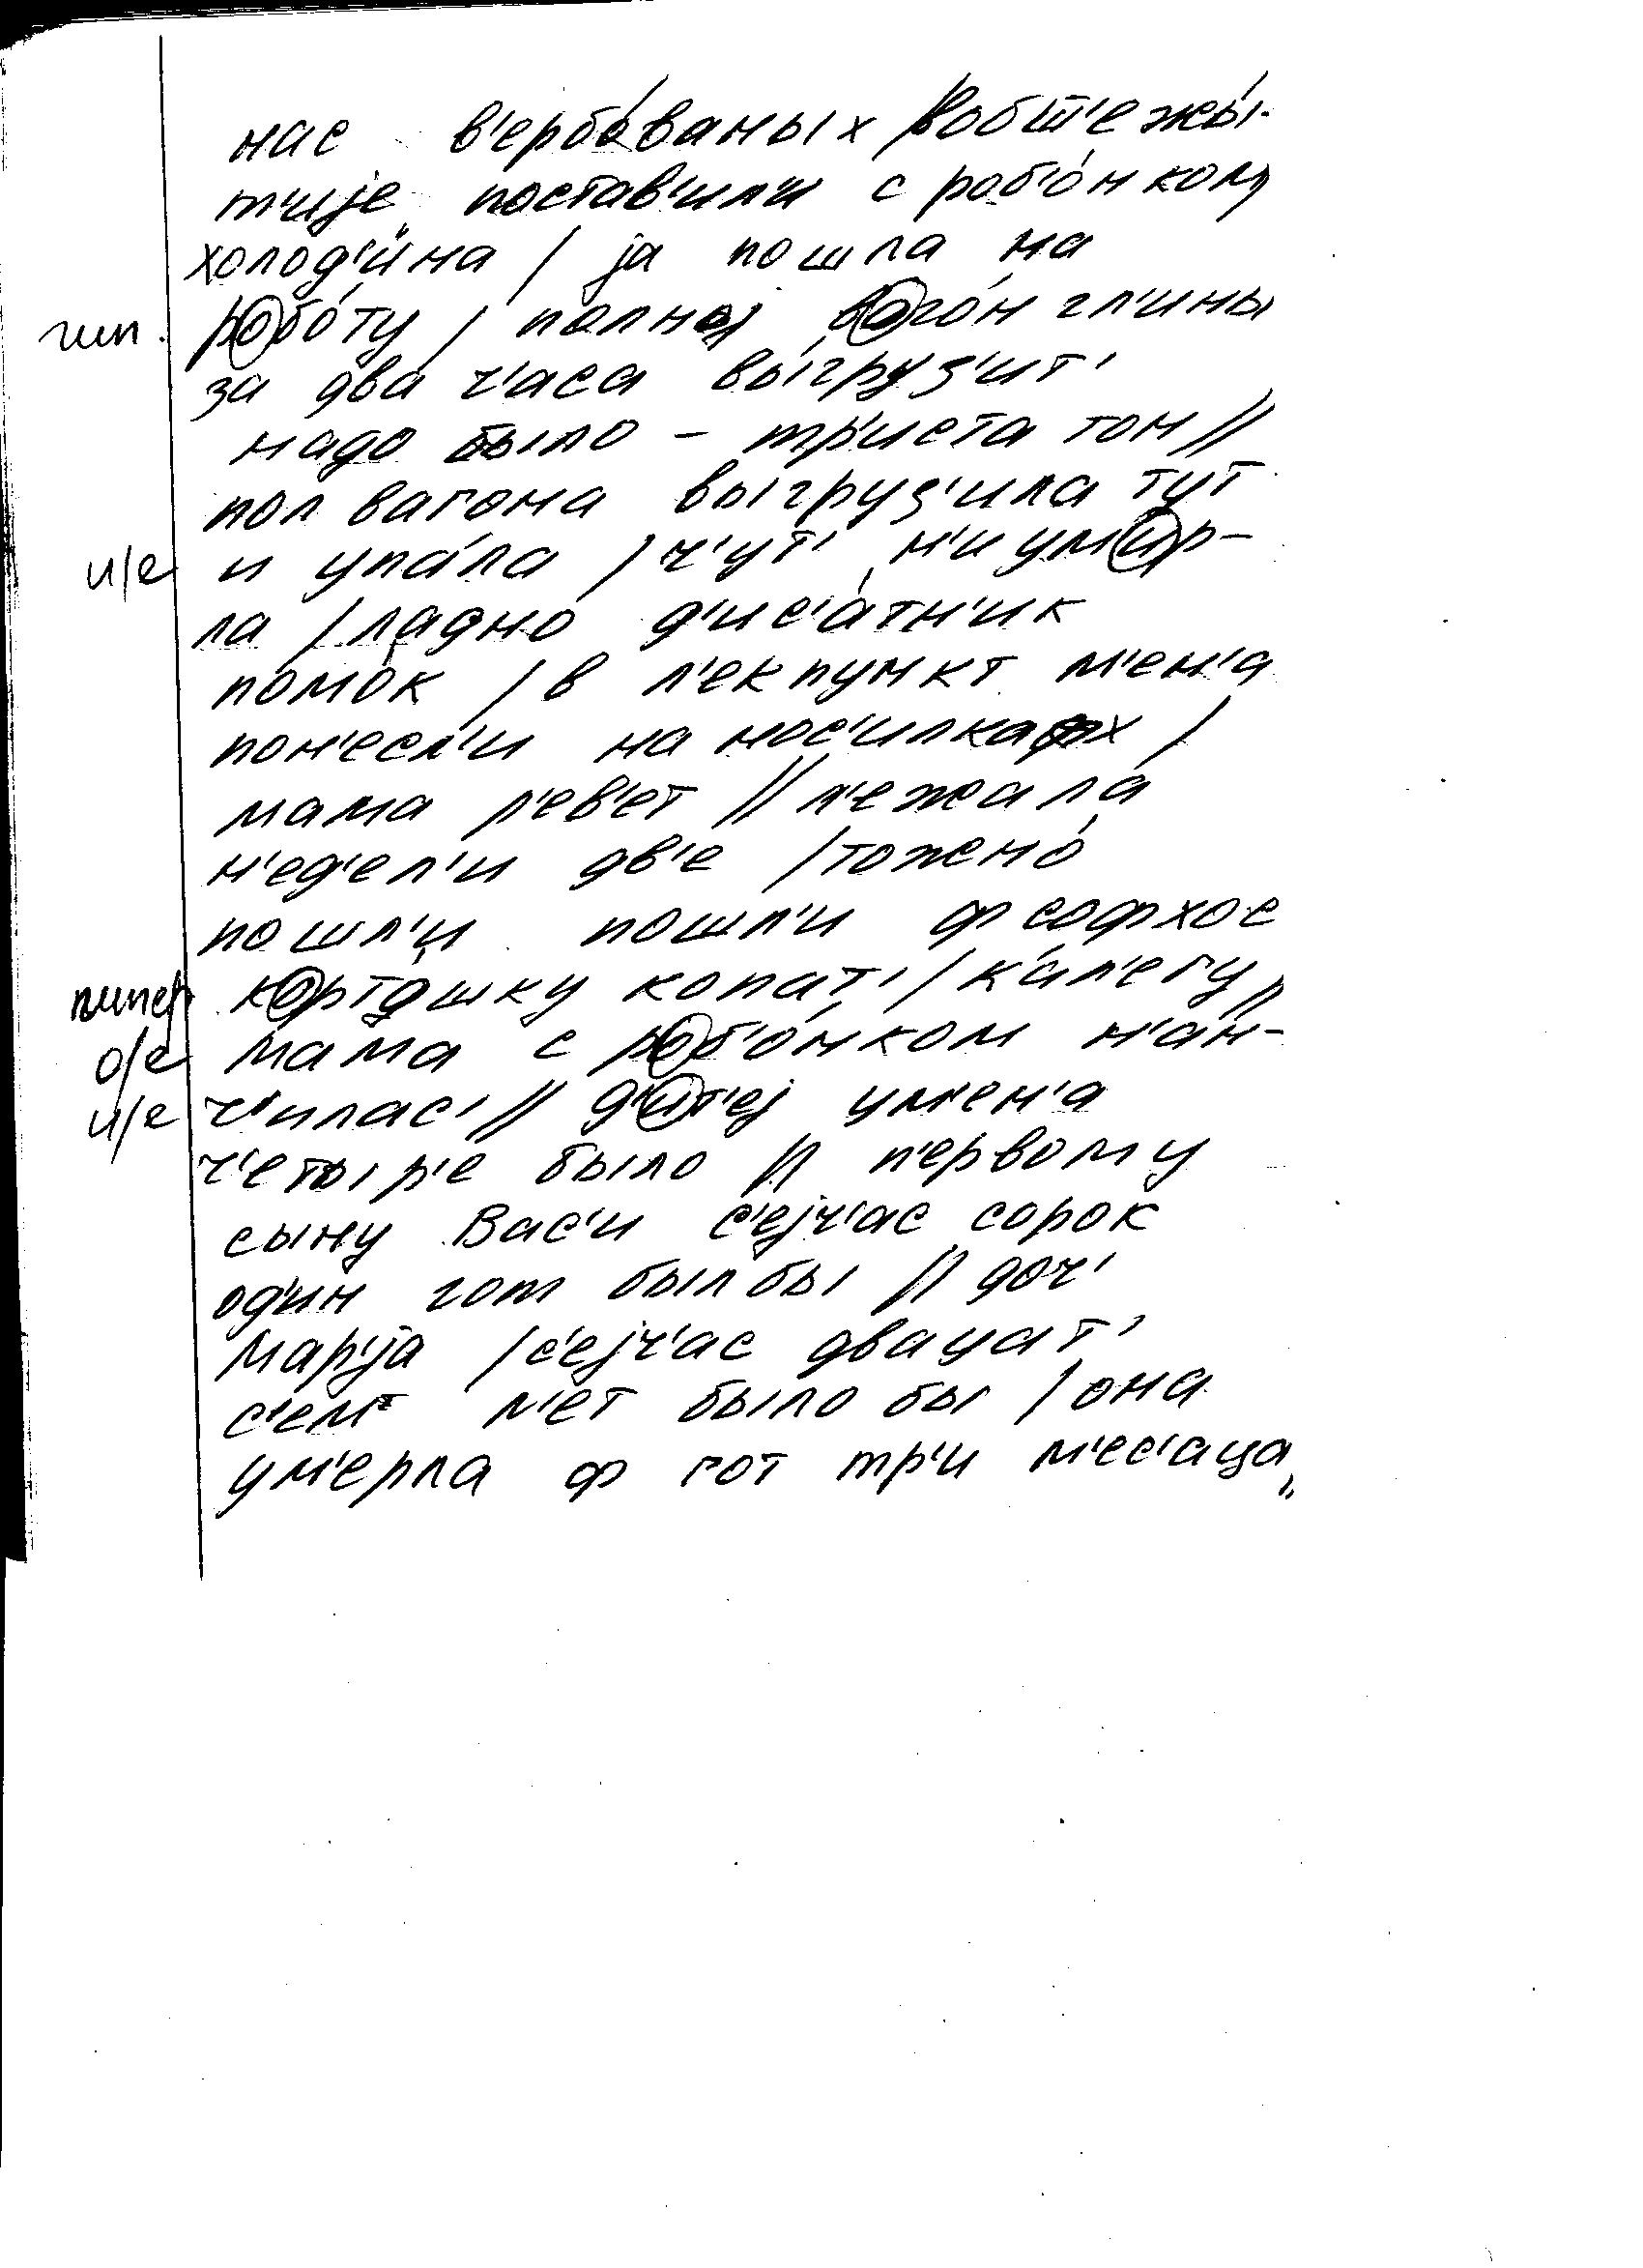 нас в'ербо́ваных / вобш'ежы́-
т'ије поставил'и с роб'о́нком,
холод'и́на / ја пошла на
гип. робо́ту / полној вого́н гл'ины
за два ч'аса вы́груз'ит'
надо было – тр'иста тон //
пол вагона выгруз'ила тут
и/е и упа́ла / ч'ут' н'и ум'ир-
ла / ладно́ д'ис'а́тн'ик
помо́к / в л'екпункт м'ен'а
пон'есл'и на нос'илках /
мама р'ев'ет // л'ежала́
н'ед'ел'и дв'е / тожено́
пошл'и пошл'и ф софхос
гипер корто́шку копат' / к а́л'егу //
о/е мама с роб'о́нком н'ан-
и/е ч'илас' // д'ит'еј ум'ен'а
ч'етыр'е было // п'ервому
сыну Вас'и с'ејч'ас сорок
од'ин гот был бы // доч'
Мар'ја / с'ејч'ас двацат'
с'ем л'ет было бы / она
ум'ерла ф гот тр'и м'ес'аца //